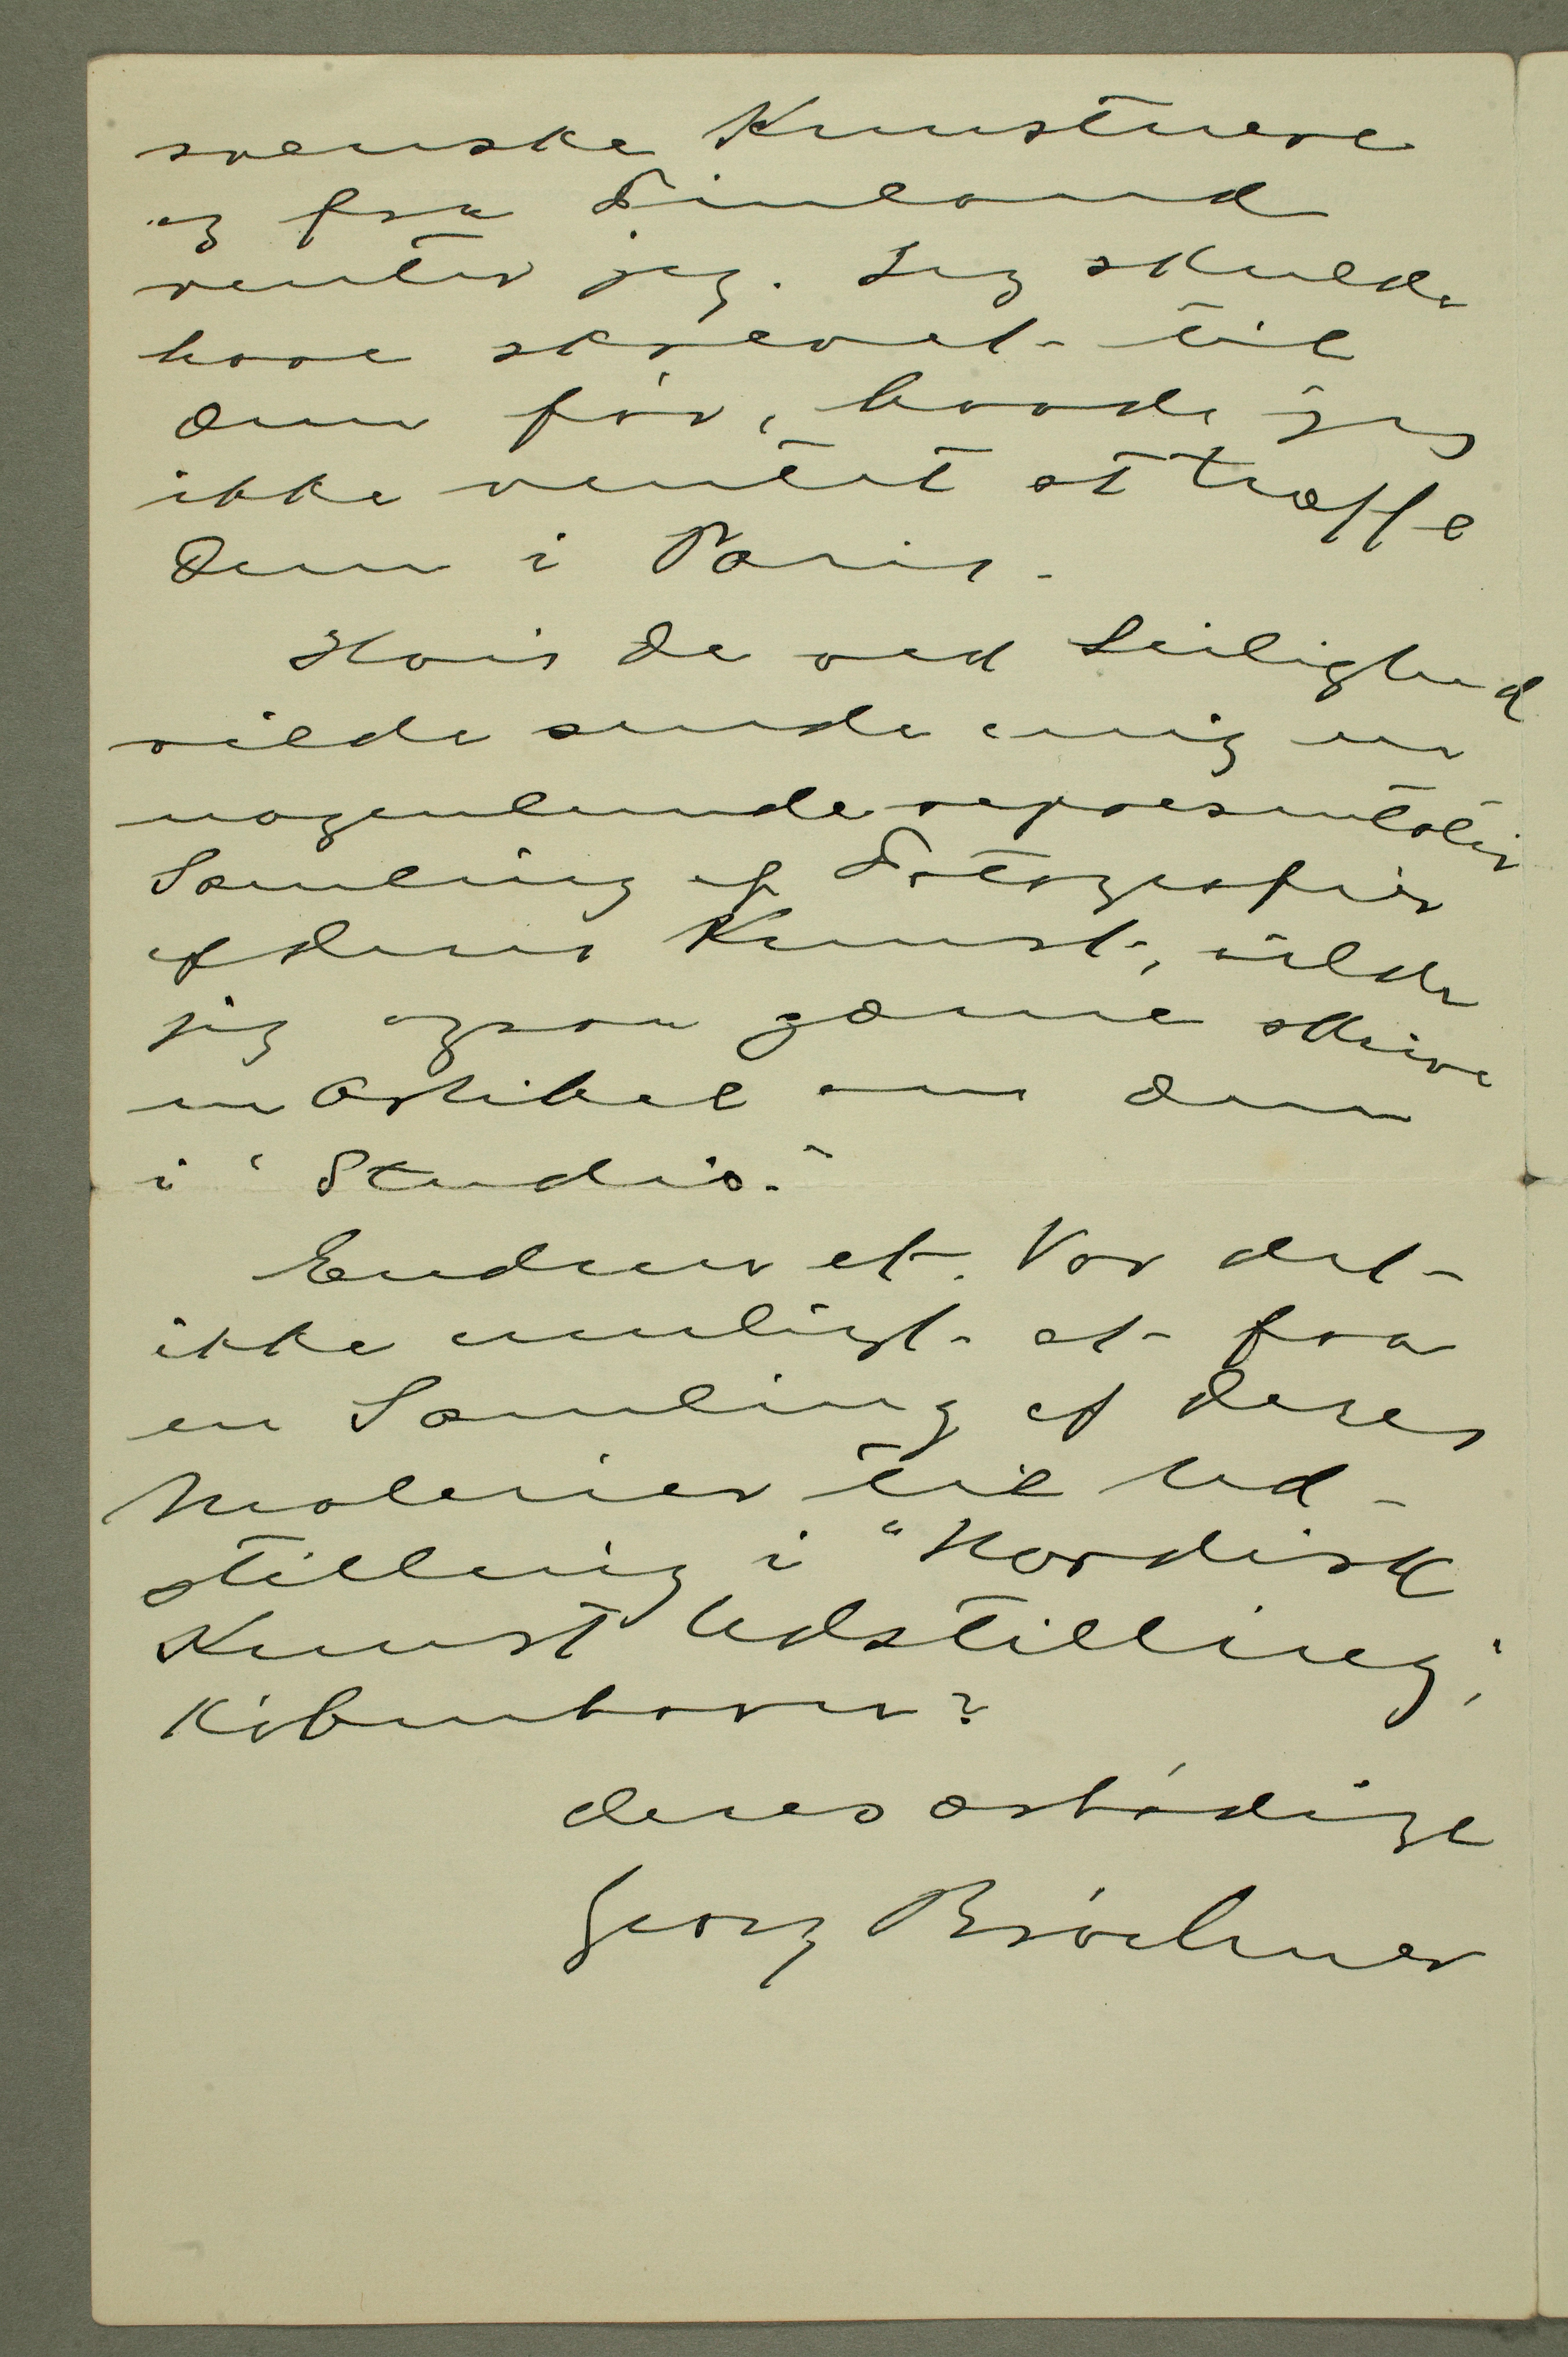 svenske Kunstnere
og fra Finland
venter jeg. Jeg skulde
have skrevet til
Dem för, havde jeg
ikke ventet at træffe
Dem i Paris.
Hvis De ved Leilighed
vilde sende mig en
nogenlunde repræsentativ
Samling af Fotografier
af deres Kunst, vilde
jeg ogsaa gærne skrive
en Artikel om Dem
i "Studio."
Endnu et. Var det
ikke muligt at faa
en Samling af Deres
Malerier til Ud-
stilling i "Nordisk
Kunst Udstilling i
Köbenhavn?
deres ærbödige
Georg Bröchner